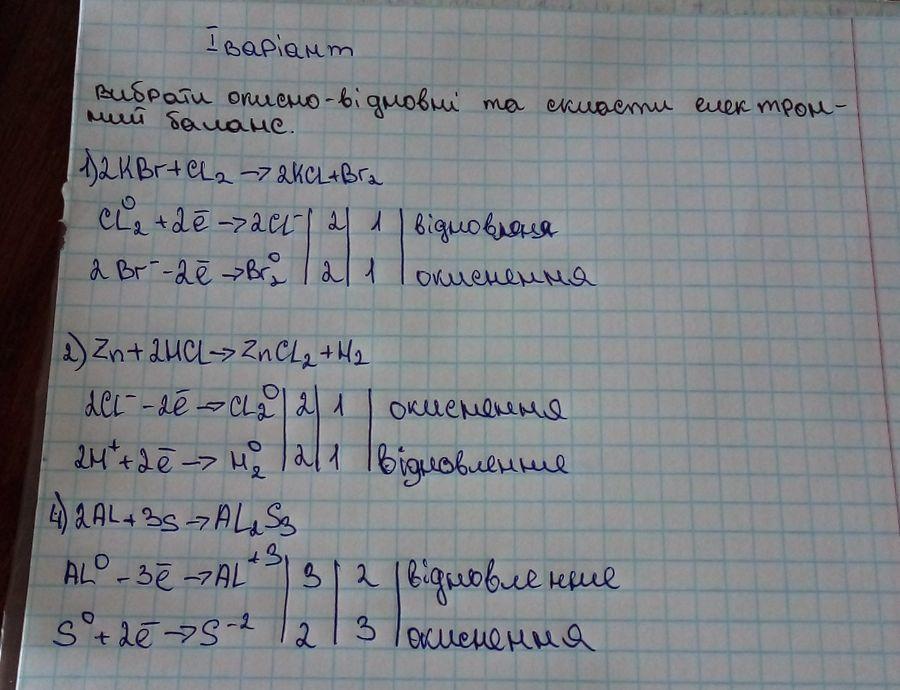 I варіант
вибрати окисно-відновні та скласти електрон-
ний баланс.
1) 2KBr + CL2 → 2KCL + Br2
CL2⁰ + 2ē → 2Cl⁻ | 2 | 1 | відновленя
2Br⁻ - 2ē → Br2⁰ | 2 | 1 | окиснення
2) Zn + 2HCL → ZnCL2 + H2
2CL⁻ - 2ē → CL2⁰ | 2 | 1 | окиснення
2H⁺ + 2ē → H2⁰ | 2 | 1 | відновленние
4) 2AL + 3S → AL2S3
AL⁰ - 3ē → AL⁺³ | 3 | 2 | відновленние
S⁰ + 2ē → S⁻² | 2 | 3 | окиснення